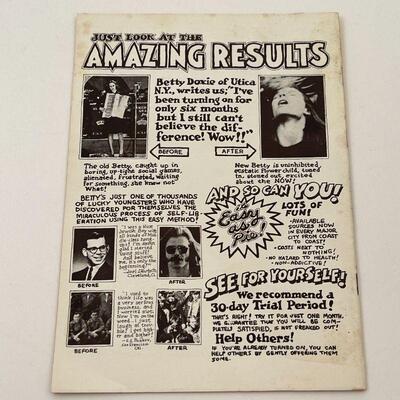 JUST LOOK AT THE
AMAZING RESULTS
Betty Doxie of Utica
N.Y., writes us; "I've
been turning on for
only six months
but I still can't
believe the dif-
ference! Wow!!"
BEFORE
AFTER
The old Betty, caught up in
boring, up-tight social games,
alienated, frustrated, waiting
for something, she knew not
What!
New Betty is uninhibited,
ecstatic flower child, tuned
in, stoned out, excited
in the NOW!
BETTY'S JUST ONE OF THOUSANDS
OF LUCKY YOUNGSTERS WHO HAVE
DISCOVERED FOR THEMSELVES THE
MIRACULOUS PROCESS OF SELF-LIB-
ERATION USING THIS EASY METHOD!
AND SO CAN YOU!
It's
Easy
as
Pie!
LOTS OF
FUN!
- AVAILABLE
SOURCES NOW
IN EVERY MAJOR
CITY FROM COAST
TO COAST!
- COSTS NEXT TO
NOTHING!
- NO HAZARD TO HEALTH!
- NON-ADDICTIVE!
"I was a
BEFORE
AFTER
"I used to
think life was
very serious
business, and
I worried
BEFORE
AFTER
SEE FOR YOURSELF!
We recommend a
30-day Trial Period!
THAT'S RIGHT! TRY IT FOR JUST ONE MONTH.
WE GUARANTEE THAT YOU WILL BE COM-
PLETELY SATISFIED, IS NOT FREAKED OUT!
Help Others!
IF YOU'RE ALREADY TURNED ON, YOU CAN
HELP OTHERS BY GENTLY OFFERING THEM
SOME.